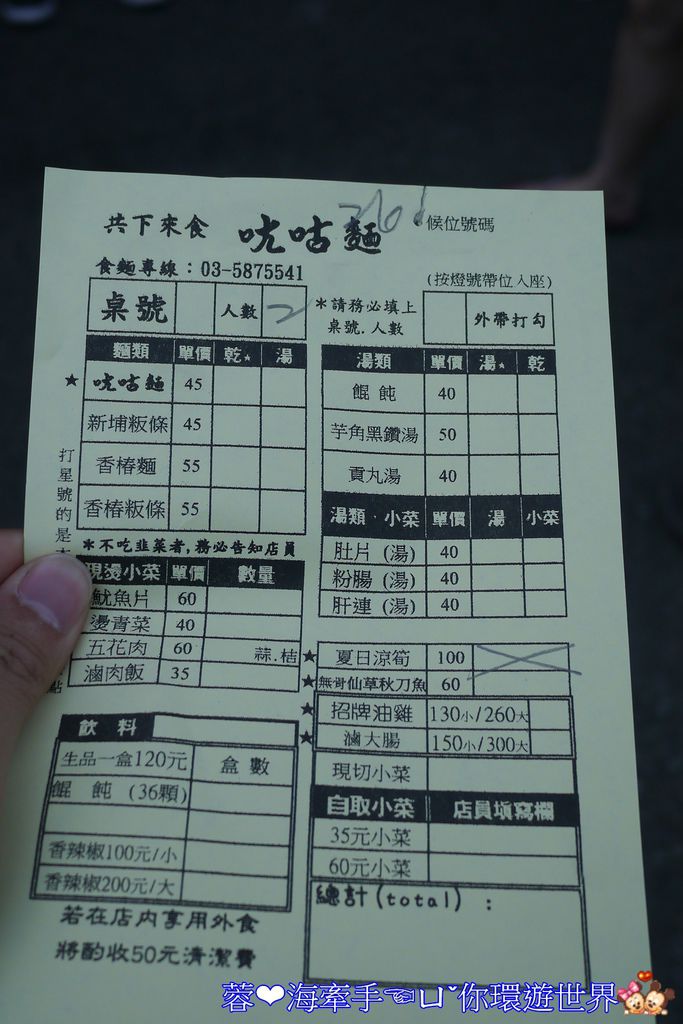 共下來食 咣咕麵 候位號碼
食麵專線：03-5875541 (按燈號帶位入座)
桌號 人數 2 *請務必填上桌號.人數 外帶打勾
麵類 單價 乾★ 湯
★ 咣咕麵 45
新埔粄條 45
香椿麵 55
香椿粄條 55
打星號的是
*不吃韭菜者,務必告知店員
現燙小菜 單價 數量
魷魚片 60
燙青菜 40
五花肉 60 蒜.桔
滷肉飯 35
飲料
生品一盒120元 盒數
餛飩 (36顆)
香辣椒100元/小
香辣椒200元/大
若在店內享用外食
將酌收50元清潔費
湯類 單價 湯★ 乾
餛飩 40
芋角黑鑽湯 50
貢丸湯 40
湯類．小菜 單價 湯 小菜
肚片 (湯) 40
粉腸 (湯) 40
肝連 (湯) 40
★ 夏日涼筍 100
★ 無骨仙草秋刀魚 60
★ 招牌油雞 130小/260大
★ 滷大腸 150小/300大
現切小菜
自取小菜 店員填寫欄
35元小菜
60元小菜
總計(total) ：
蓉❤海牽手☜ㄩˇ你環遊世界